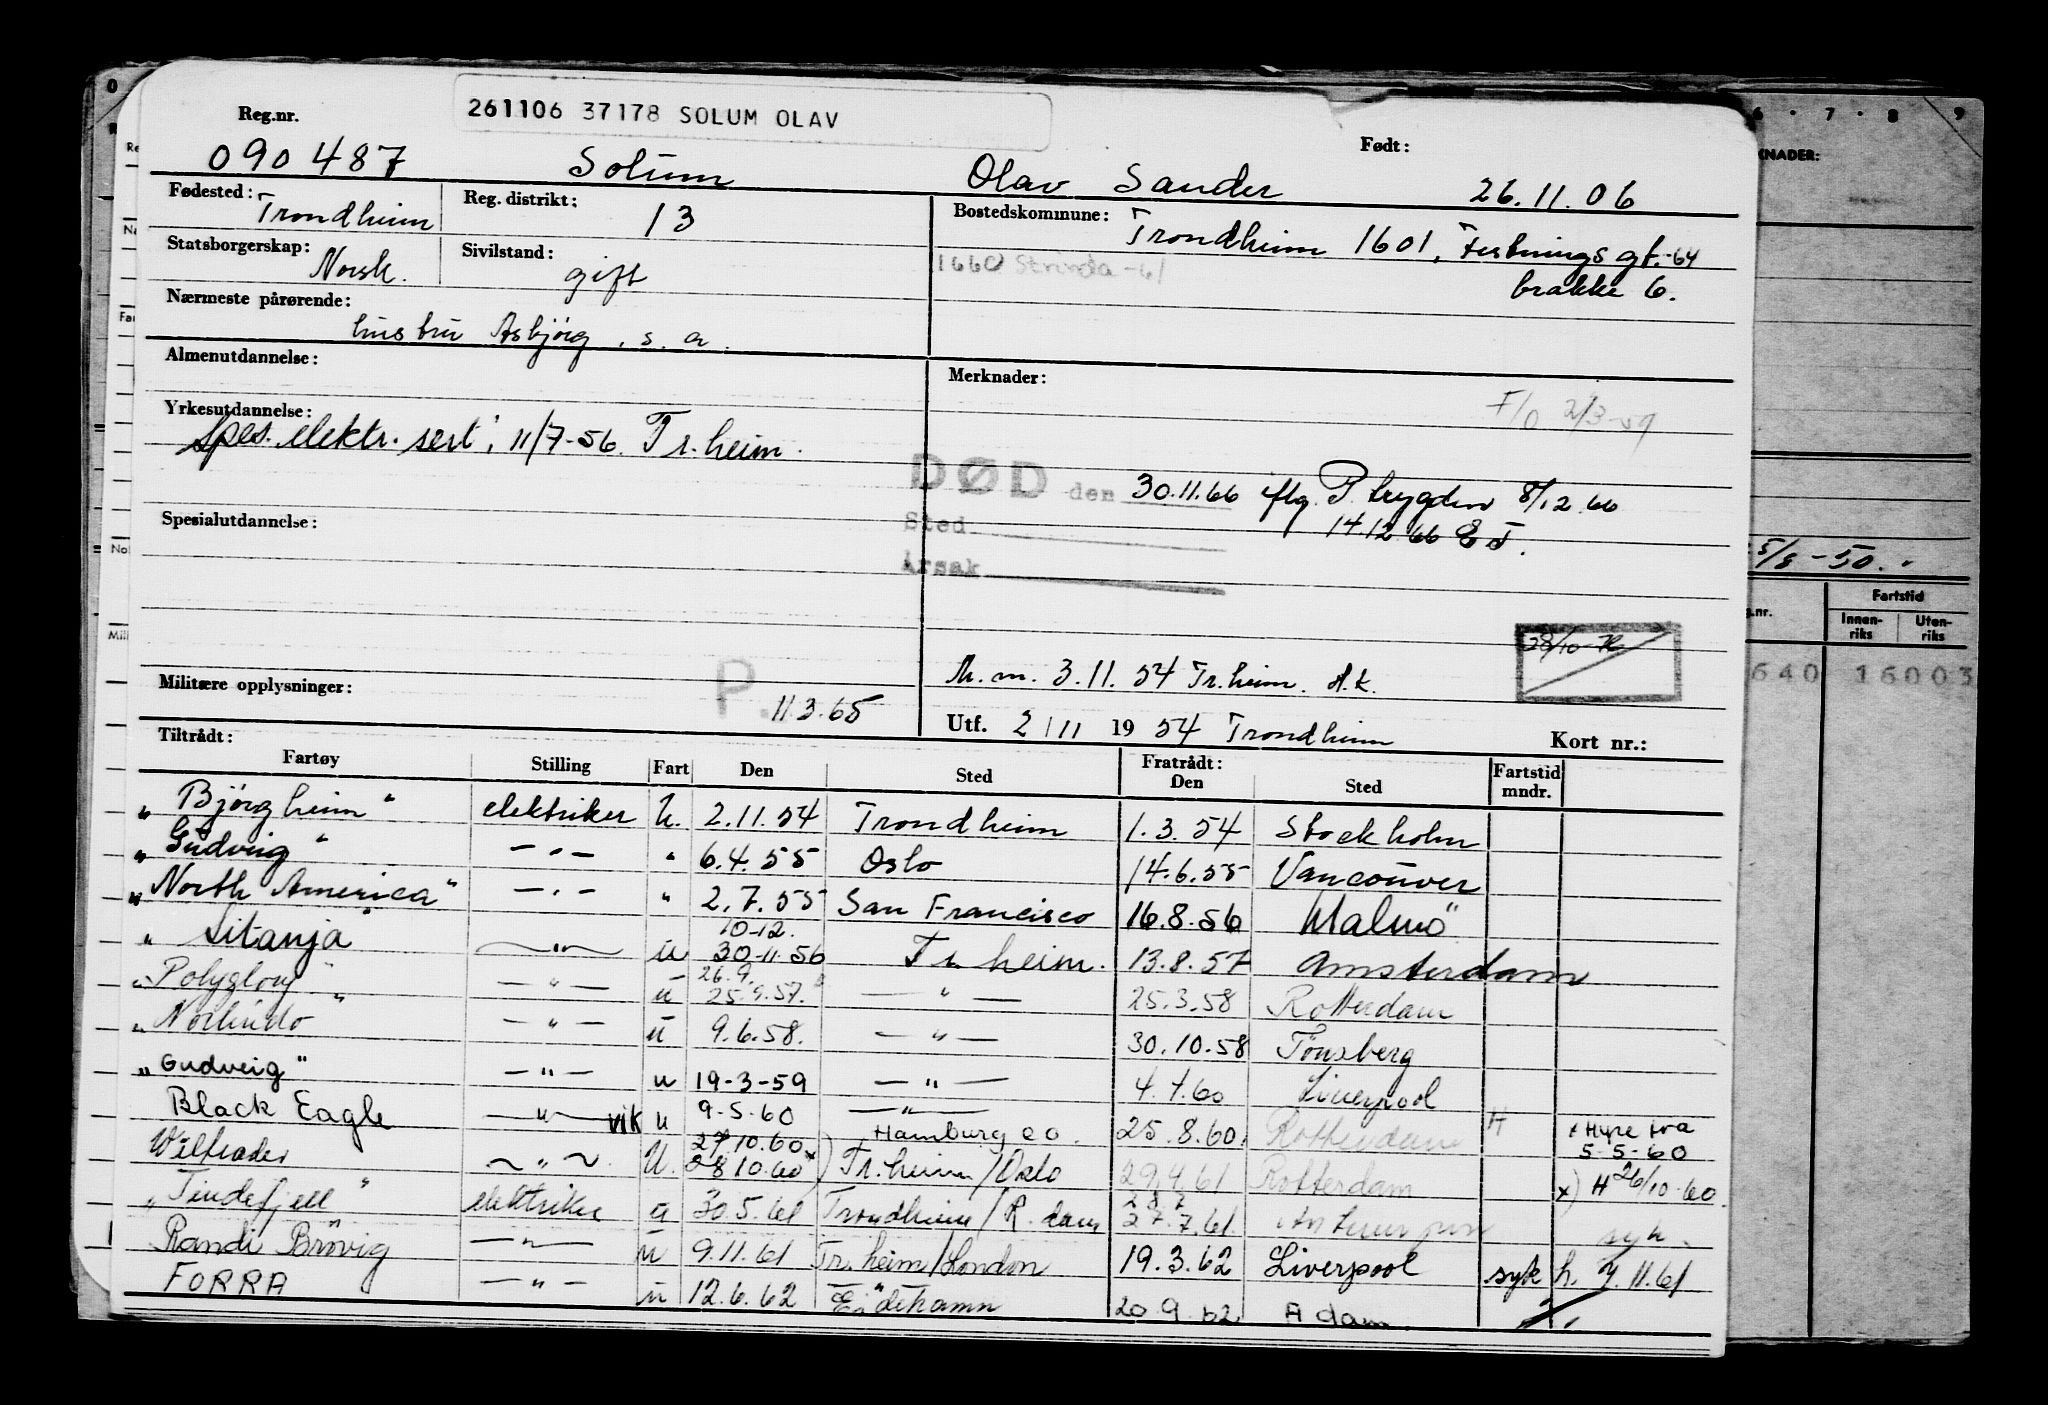 261106 37178 SOLUM OLAV
Reg.nr. Født:
090487 Solum Olav Sander 26.11.06
Fødested: Trondheim Reg. distrikt: 13 Bostedskommune: Trondheim 1601, Festningsgt.-64
brakke 6.
1660 Strinda -61
Statsborgerskap: Norsk. Sivilstand: gift
Nærmeste pårørende: hustru Asbjørg, s. a.
Almenutdannelse: Merknader:
F/O 2/3-59
Yrkesutdannelse:
Spes. elektr. sert; 11/7-56. Tr.heim.
DØD den 30.11.66 iflg. P. trygden 8/12.66
Sted 14.12.66 E J.
Årsak
Spesialutdannelse:
28/10-
M. m. 3.11.54 Tr.heim. A.k.
Militære opplysninger: P. 11.3.65
Utf. 2/11 1954 Trondheim Kort nr.:
Tiltrådt: Fratrådt:
Fartøy Stilling Fart Den Sted Den Sted Fartstid mndr.
"Bjørgheim" elektriker U. 2.11.54 Trondheim 1.3.54 Stockholm
"Gudveig" — " — " 6.4.55 Oslo 14.6.55 Vancouver
"North America" — " — " 2.7.55 San Francisco 16.8.56 Malmö
10-12.
"Litanja" — " — u 30-11-56 Tr.heim. 13.8.57 Amsterdam
26.9.
"Polyglory" — " — u 25.9.57. — " — 25.3.58 Rotterdam
"Norlindo" — " — u 9.6.58. — " — 30.10.58 Tönsberg
"Gudveig" — " — u 19-3-59 — " — 4.1.60 Liverpool
Black Eagle — " — vik u 9-5-60 — " — Hamburg e o. 25.8.60. Rotterdam H x Hyre fra 5-5-60
27.10.60
Wiltrader — " — U. 28.10.60 x) Tr.heim/Oslo 29.4.61 Rotterdam x) H 26/10-60.
28.7
"Tindefjell" elektriker u 30.5.61 Trondheim/R.dam 27.7.61. Antwerpen syk.
Randi Brøvig — " — u 9.11.61 Tr.heim/London 19.3.62 Liverpool syk h. 7.11.61
FORRA — " — u 12.6.62 Eidehamn 20.9.62 Adam.
6 · 7 · 8 9
KNADER:
5/8-50.
g.nr. Fartstid
Innen-riks Uten-riks
640 16003